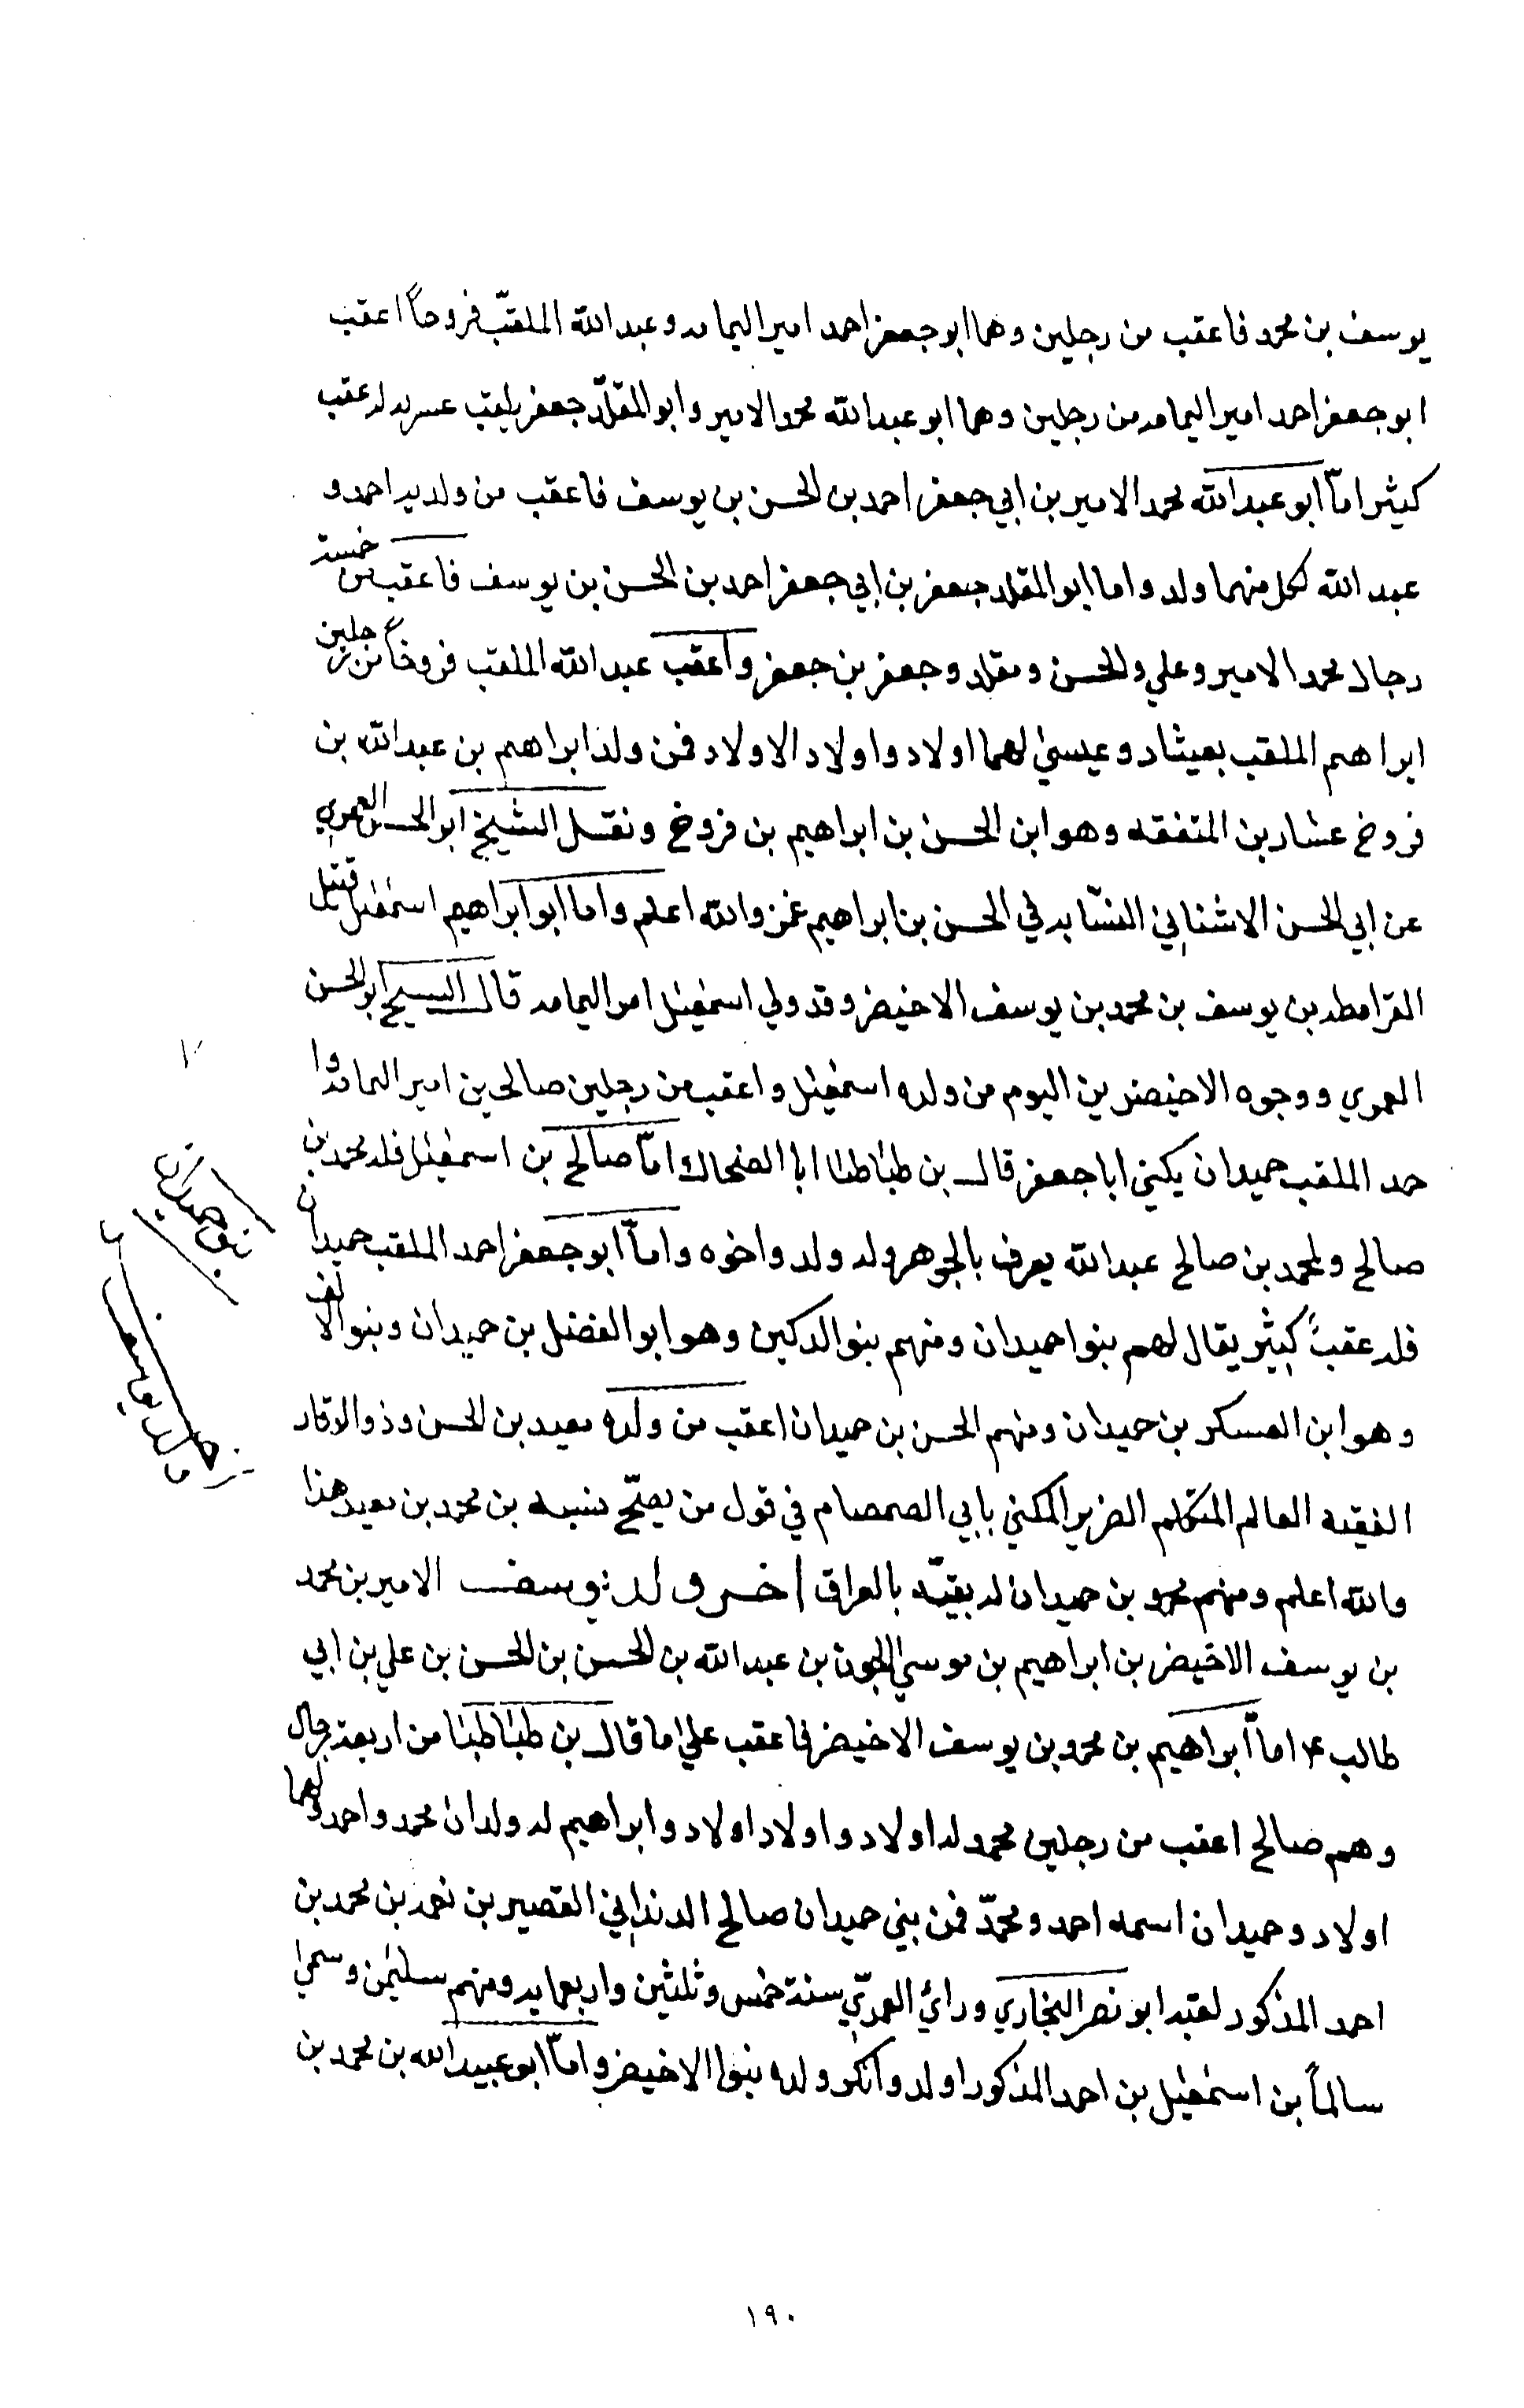 يوسف بن محمد فاعقب من رجلين وهما ابو جعفر احمد امير اليمامه وعبد الله الملقّب فروخاً اعقب
ابو جعفر احمد امير اليمامه من رجلين وهما ابو عبد الله محمد الامير وابو المقلّد جعفر يلقب عسريه له عقب
كيثر امّا ابو عبد الله محمد الامير بن ابي جعفر احمد بن الحسن بن يوسف فاعقب من ولديه احمد و
عبد الله لكل منهما ولد واما ابو المقلد جعفر بن ابي جعفر احمد بن الحسن بن يوسف فاعقب من خمسة
رجال محمد الامير وعلي والحسن ومقلد وجعفر بن جعفر واعقب عبد الله الملقب فروخاً من رجلين
ابراهيم الملقب بعيثار وعيسىٰ لهما اولاد واولاد الاولاد فمن ولد ابراهيم بن عبد الله بن
فروخ عشار بن المتفقه وهو ابن الحسن بن ابراهيم بن فروخ ونقل الشيخ ابو الحسن العمري
عن ابي الحسن الاشناني النسّابه في الحسن بن ابراهيم غمز والله اعلم واما ابو ابراهيم اسمٰعيل قتيل
القرامطه بن يوسف بن محمد بن يوسف الاخيضر وقد ولي اسمٰعيل امر اليمامه قال الشيخ ابو الحسن
العمري ووجوه الاخيضريين اليوم من ولده اسمٰعيل واعقب من رجلين صالح بن امير اليمامه وا
حد الملقب حميدان يكنىٰ ابا جعفر قال بن طباطبا ابا الضحاك امّا صالح بن اسمٰعيل فله محمد بن
صالح ولمحمد بن صالح عبد الله يعرف بالجوهره له ولد واخوه وامّا ابو جعفر احمد الملقب حميدان
فله عقبٌ كيثر يقال لهم بنوا حميدان ومنهم بنو الدكين وهو ابو الفضل بن حميدان وبنو الالف
وهو ابن العسكر بن حميدان ومنهم الحسن بن حميدان اعقب من ولده معيد بن الحسن وذو الفقار
الفقيه العالم المتكلم الضرير المكنىٰ بابي الصمصام في قول من يصحّح نسبه بن محمد بن معيد هذا
والله اعلم ومنهم محمد بن حميدان له بقيّه بالعراق اخر ولد يوسف الامير بن محمد
بن يوسف الاخيضر بن ابراهيم بن موسىٰ الجون بن عبد الله بن الحسن بن الحسن بن علي بن ابي
طالب ع امّا ابراهيم بن محمد بن يوسف الاخيضر فاعقب علىٰ ما قال بن طباطبا من اربعة رجال
وهم صالح اعقب من رجلين محمد له اولاد واولاد اولاد وابراهيم له ولدان محمد واحمد ولهما
اولاد وحميدان اسمه احمد ومحمّد فمن بني حميدان صالح الدنداني القصير بن نعمه بن محمد بن
احمد المذكور لقبه ابو نصر البخاري ورائ العمريّ سنة خمس وثلثين واربعمايه ومنهم سليمٰن وسمىٰ
سالماً بن اسمٰعيل بن احمد المذكور اولد وانكر ولده بنوا الاخيضر وامّا ابو عبيد الله بن محمد بن
بنو حميدان
١٩٠